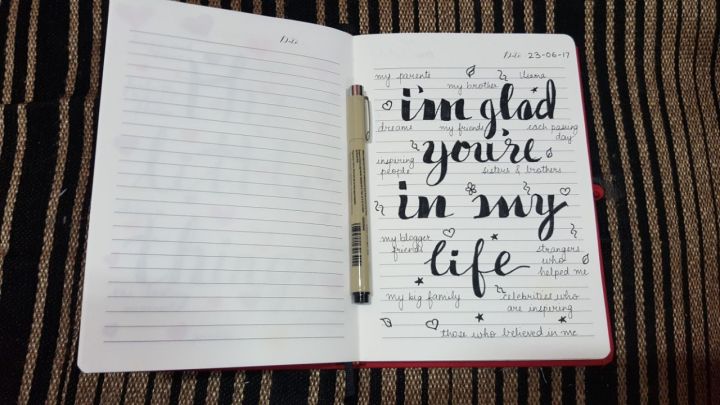 Date
Date 23-06-17
my parents
my brother
i'm glad
dreams
my friends
each passing
day
you're
inspiring
people
sisters & brothers
in my
my blogger
friends
strangers
who
helped me
life
my big family
celebrities who
are inspiring
those who believed in me